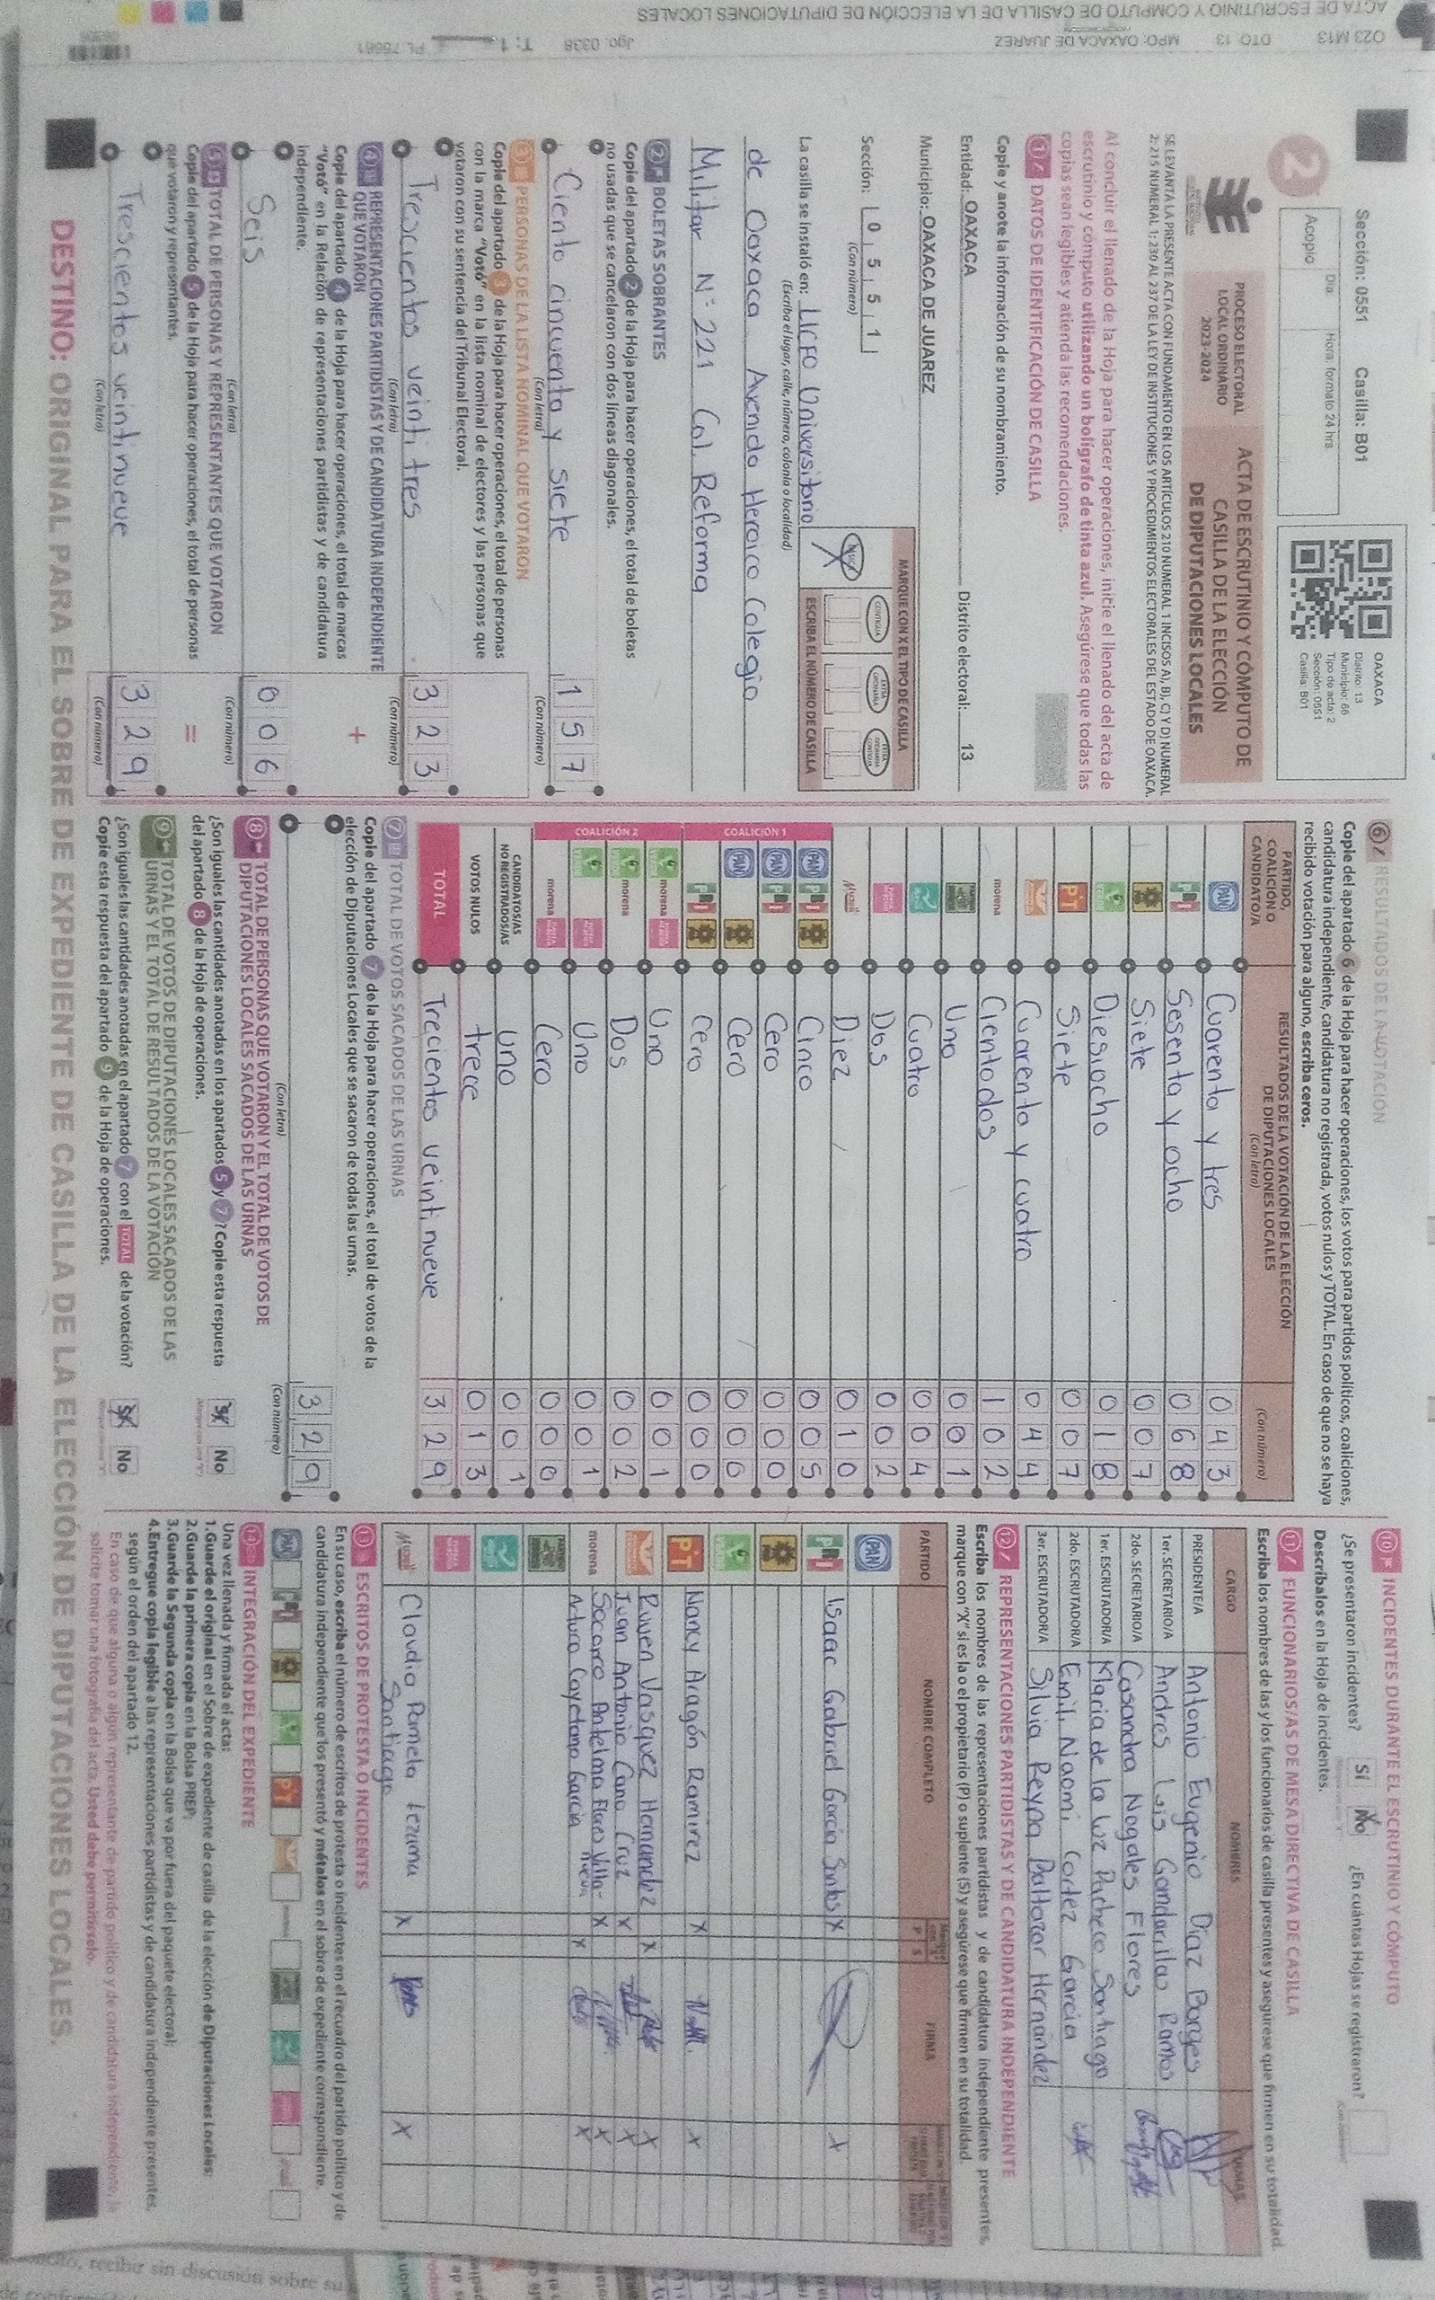 Sección: 0551 Casilla: B01
2
Día
Hora: formato 24 hrs
Acopio
OAXACA
Distrito: 13
Municipio: 66
Tipo de acta: 2
Sección: 0551
Casilla: B01
PROCESO ELECTORAL
LOCAL ORDINARIO
2023-2024
ACTA DE ESCRUTINIO Y CÓMPUTO DE
CASILLA DE LA ELECCIÓN
DE DIPUTACIONES LOCALES
SE LEVANTA LA PRESENTE ACTA CON FUNDAMENTO EN LOS ARTÍCULOS 210 NUMERAL 1 INCISOS A), B), C) Y D) NUMERAL
2; 215 NUMERAL 1; 230 AL 237 DE LA LEY DE INSTITUCIONES Y PROCEDIMIENTOS ELECTORALES DEL ESTADO DE OAXACA.
Al concluir el llenado de la Hoja para hacer operaciones, inicie el llenado del acta de
escrutinio y cómputo utilizando un bolígrafo de tinta azul. Asegúrese que todas las
copias sean legibles y atienda las recomendaciones.
1 DATOS DE IDENTIFICACIÓN DE CASILLA
Copie y anote la información de su nombramiento.
Entidad: OAXACA Distrito electoral: 13
Municipio: OAXACA DE JUAREZ
Sección: 0 5 5 1
(Con número)
MARQUE CON X EL TIPO DE CASILLA
ESCRIBA EL NÚMERO DE CASILLA
La casilla se instaló en: LICEO Universitario
(Escriba el lugar, calle, número, colonia o localidad)
de Oaxaca Avenida Heroico Colegio
Militar N° 221 Col. Reforma
2 BOLETAS SOBRANTES
Copie del apartado 2 de la Hoja para hacer operaciones, el total de boletas
no usadas que se cancelaron con dos líneas diagonales.
Ciento cincuenta y siete 1 5 7
(Con letra) (Con número)
3 PERSONAS DE LA LISTA NOMINAL QUE VOTARON
Copie del apartado 3 de la Hoja para hacer operaciones, el total de personas
con la marca "Votó" en la lista nominal de electores y las personas que
votaron con su sentencia del Tribunal Electoral.
Trescientos veinti tres 3 2 3
(Con letra) (Con número)
4 REPRESENTACIONES PARTIDISTAS Y DE CANDIDATURA INDEPENDIENTE
QUE VOTARON
+
Copie del apartado 4 de la Hoja para hacer operaciones, el total de marcas
"Votó" en la Relación de representaciones partidistas y de candidatura
independiente.
Seis 0 0 6
(Con letra) (Con número)
5 TOTAL DE PERSONAS Y REPRESENTANTES QUE VOTARON
=
Copie del apartado 5 de la Hoja para hacer operaciones, el total de personas
que votaron y representantes.
Trescientos veintinueve 3 2 9
(Con letra) (Con número)
6 RESULTADOS DE LA VOTACIÓN
Copie del apartado 6 de la Hoja para hacer operaciones, los votos para partidos políticos, coaliciones,
candidatura independiente, candidatura no registrada, votos nulos y TOTAL. En caso de que no se haya
recibido votación para alguno, escriba ceros.
PARTIDO,
COALICIÓN O
CANDIDATO/A
RESULTADOS DE LA VOTACIÓN DE LA ELECCIÓN
DE DIPUTACIONES LOCALES
(Con letra) (Con número)
PAN Cuarenta y tres 0 4 3
PRI Sesenta y ocho 0 6 8
Siete 0 0 7
Diesiocho 0 1 8
PT Siete 0 0 7
Cuarenta y cuatro 0 4 4
morena Ciento dos 1 0 2
Uno 0 0 1
Cuatro 0 0 4
Dos 0 0 2
Diez 0 1 0
COALICIÓN 1
PAN PRI Cinco 0 0 5
PAN PRI Cero 0 0 0
PAN Cero 0 0 0
PRI Cero 0 0 0
COALICIÓN 2
morena Uno 0 0 1
morena Dos 0 0 2
Uno 0 0 1
morena Cero 0 0 0
CANDIDATOS/AS
NO REGISTRADOS/AS Uno 0 0 1
VOTOS NULOS trece 0 1 3
TOTAL Trecientos veinti nueve 3 2 9
7 TOTAL DE VOTOS SACADOS DE LAS URNAS
Copie del apartado 7 de la Hoja para hacer operaciones, el total de votos de la
elección de Diputaciones Locales que se sacaron de todas las urnas.
3 2 9
(Con letra) (Con número)
8 TOTAL DE PERSONAS QUE VOTARON Y EL TOTAL DE VOTOS DE
DIPUTACIONES LOCALES SACADOS DE LAS URNAS
¿Son iguales las cantidades anotadas en los apartados 5 y 7? Copie esta respuesta
del apartado 8 de la Hoja de operaciones.
Sí No
9 TOTAL DE VOTOS DE DIPUTACIONES LOCALES SACADOS DE LAS
URNAS Y EL TOTAL DE RESULTADOS DE LA VOTACIÓN
¿Son iguales las cantidades anotadas en el apartado 7 con el TOTAL de la votación?
Copie esta respuesta del apartado 9 de la Hoja de operaciones.
Sí No
10 INCIDENTES DURANTE EL ESCRUTINIO Y CÓMPUTO
¿Se presentaron incidentes? Sí No ¿En cuántas Hojas se registraron?
Descríbalos en la Hoja de incidentes.
11 FUNCIONARIOS/AS DE MESA DIRECTIVA DE CASILLA
Escriba los nombres de las y los funcionarios de casilla presentes y asegúrese que firmen en su totalidad.
CARGO NOMBRES FIRMAS
PRESIDENTE/A Antonio Eugenio Díaz Borges
1er. SECRETARIO/A Andres Luis Gandarillas Ramos
2do. SECRETARIO/A Casandra Nogales Flores
1er. ESCRUTADOR/A Klaria de la Luz Pacheco Santiago
2do. ESCRUTADOR/A Emili Naomi Cortez Garcia
3er. ESCRUTADOR/A Silvia Reyna Baltazar Hernández
12 REPRESENTACIONES PARTIDISTAS Y DE CANDIDATURA INDEPENDIENTE
Escriba los nombres de las representaciones partidistas y de candidatura independiente presentes,
marque con "X" si es la o el propietario (P) o suplente (S) y asegúrese que firmen en su totalidad.
PARTIDO NOMBRE COMPLETO P S FIRMA
PAN
PRI Isaac Gabriel García Santos X X
PT Nancy Aragón Ramirez X X
Ruven Vasquez Hernandez X X
Juan Antonio Cano Cruz X X
morena Socorro Antelma Flores Villa- X X
Arturo Cayetano Garcia X X
Claudia Pamela Lezama X X
Santiago
13 ESCRITOS DE PROTESTA O INCIDENTES
En su caso, escriba el número de escritos de protesta o incidentes en el recuadro del partido político y de
candidatura independiente que los presentó y métalos en el sobre de expediente correspondiente.
14 INTEGRACIÓN DEL EXPEDIENTE
Una vez llenada y firmada el acta:
1.Guarde el original en el Sobre de expediente de casilla de la elección de Diputaciones Locales;
2.Guarde la primera copia en la Bolsa PREP;
3.Guarde la Segunda copia en la Bolsa que va por fuera del paquete electoral;
4.Entregue copia legible a las representaciones partidistas y de candidatura independiente presentes,
según el orden del apartado 12.
En caso de que alguna o algún representante de partido político y de candidatura independiente, le
solicite tomar una fotografía del acta, Usted debe permitírselo.
DESTINO: ORIGINAL PARA EL SOBRE DE EXPEDIENTE DE CASILLA DE LA ELECCIÓN DE DIPUTACIONES LOCALES.
O23 M13 DTO. 13 MPO: OAXACA DE JUAREZ
ACTA DE ESCRUTINIO Y COMPUTO DE CASILLA DE LA ELECCION DE DIPUTACIONES LOCALES
Jgo. 0338 T: 1
recibir sin discusión sobre su